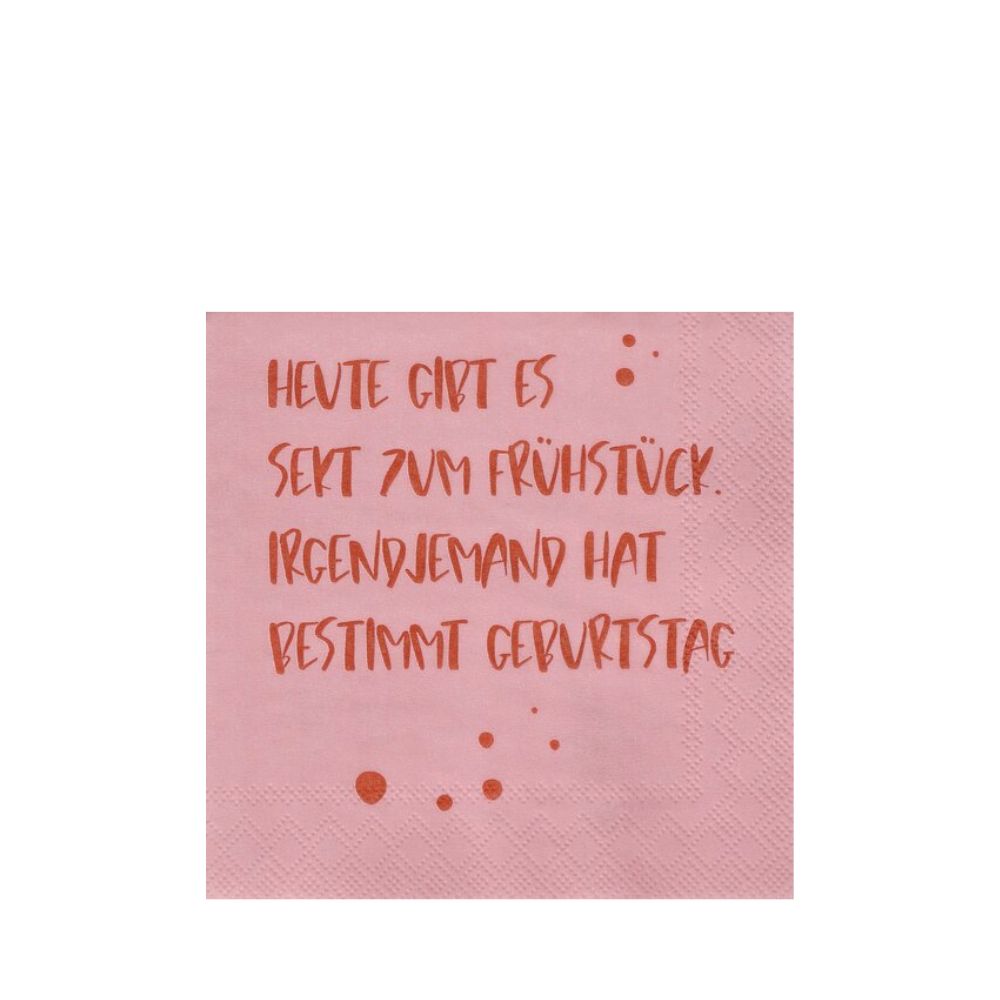 HEUTE GIBT ES
SEKT ZUM FRÜHSTÜCK.
IRGENDJEMAND HAT
BESTIMMT GEBURTSTAG